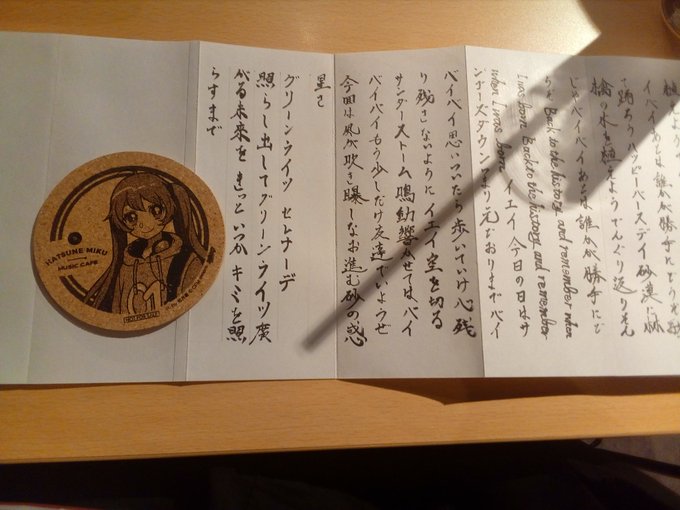 イバイあとは誰かが勝手にどうぞ
で踊ろうハッピーバースデイ砂漠に林
檎の木を植えようでんぐり返りそん
じゃバイバイあとは誰かが勝手にど
うぞ Back to the history and remember when
I was born Back to the history and remember
when I was born イエイ 今日の日はサ
ンゴーズダウンつまり元どおりまでバイ
バイバイ思いついたら歩いていけ心残
り残さないように イエイ空を切る
サンダーストーム鳴動響かせてはバイ
バイバイもう少しだけ友達でいようぜ
今回は風が吹き曝しなお進む砂の惑
星さ
グリーンライツ セレナーデ
照らし出してグリーンライツ廣
がる未来を きっといつか キミを照
らすまで
HATSUNE MIKU
MUSIC CAFE
01
NOT FOR SALE